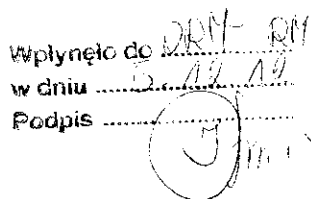 Wpłynęło do DRM-RM
w dniu 5.12.12
Podpis